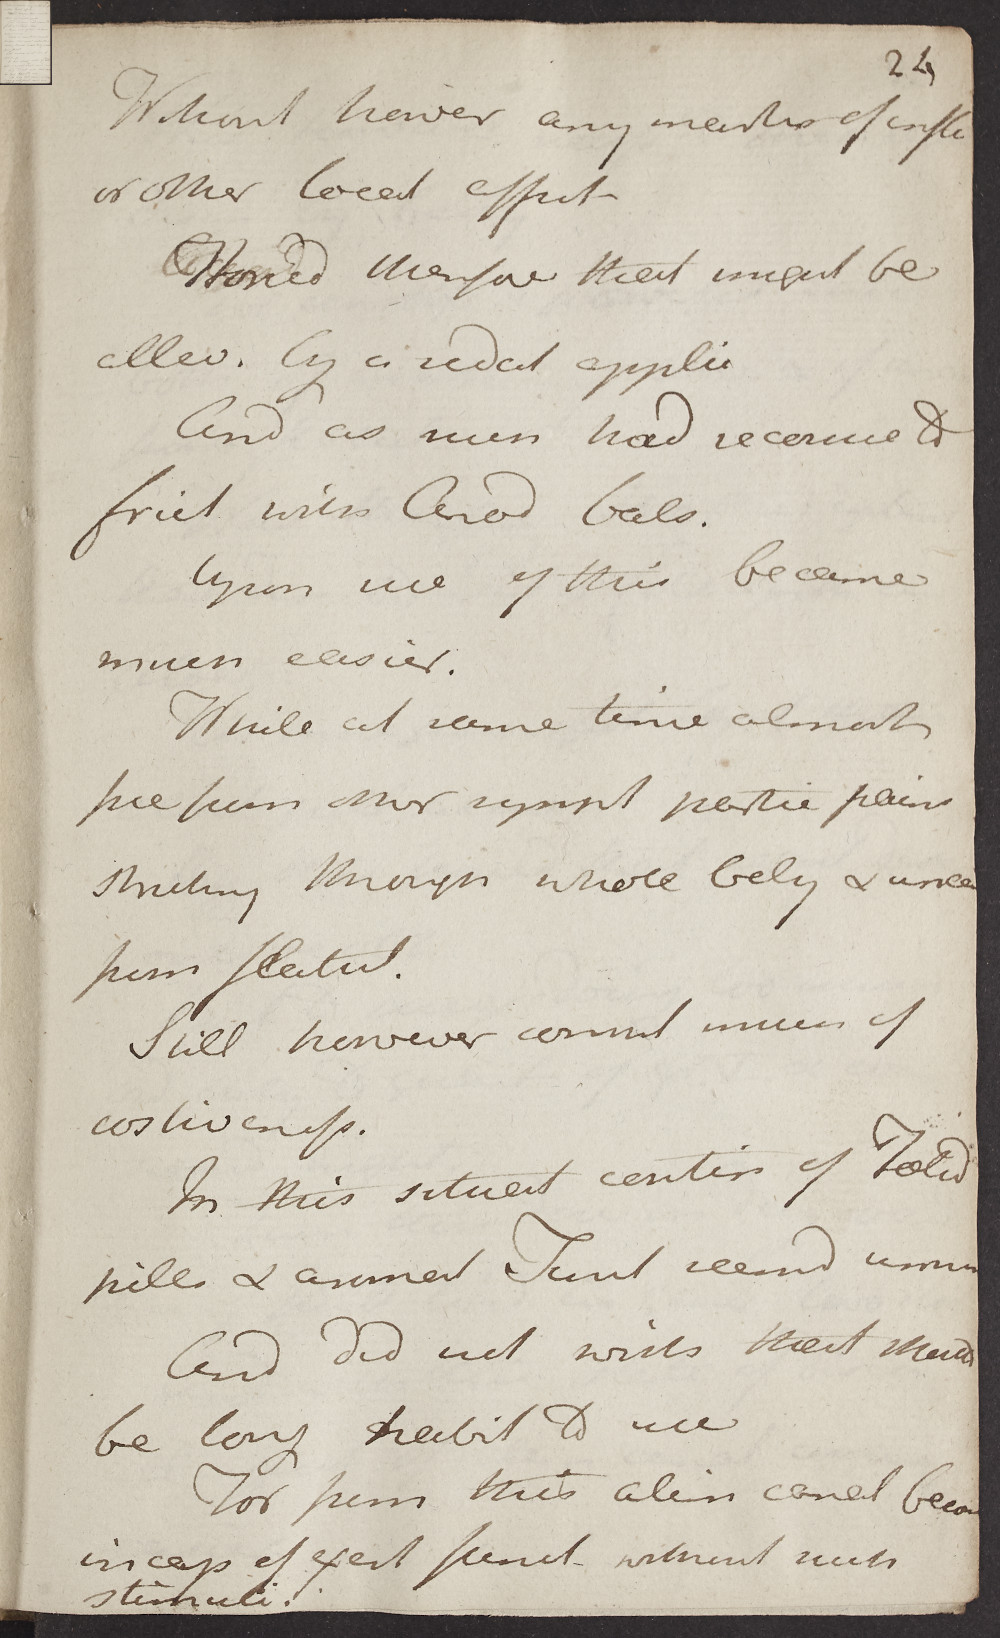 24
Without however any marks of infla
or other local effect
Hoped therefore that might be
allev. by a sedat applic
And as such had recourse to
frict with Anod bals.
Upon use of this became
much easier.
While at same time almost
free from other sympt partic pains
through whole bely &
from flatul.
Still however much of
costiveness.
In this situat contin of Foetid
pills & aromat Tinct seemd
And did not wish that should
be long habit to use
For from this alim canal becom
incap of exert funct without such
stimuli.